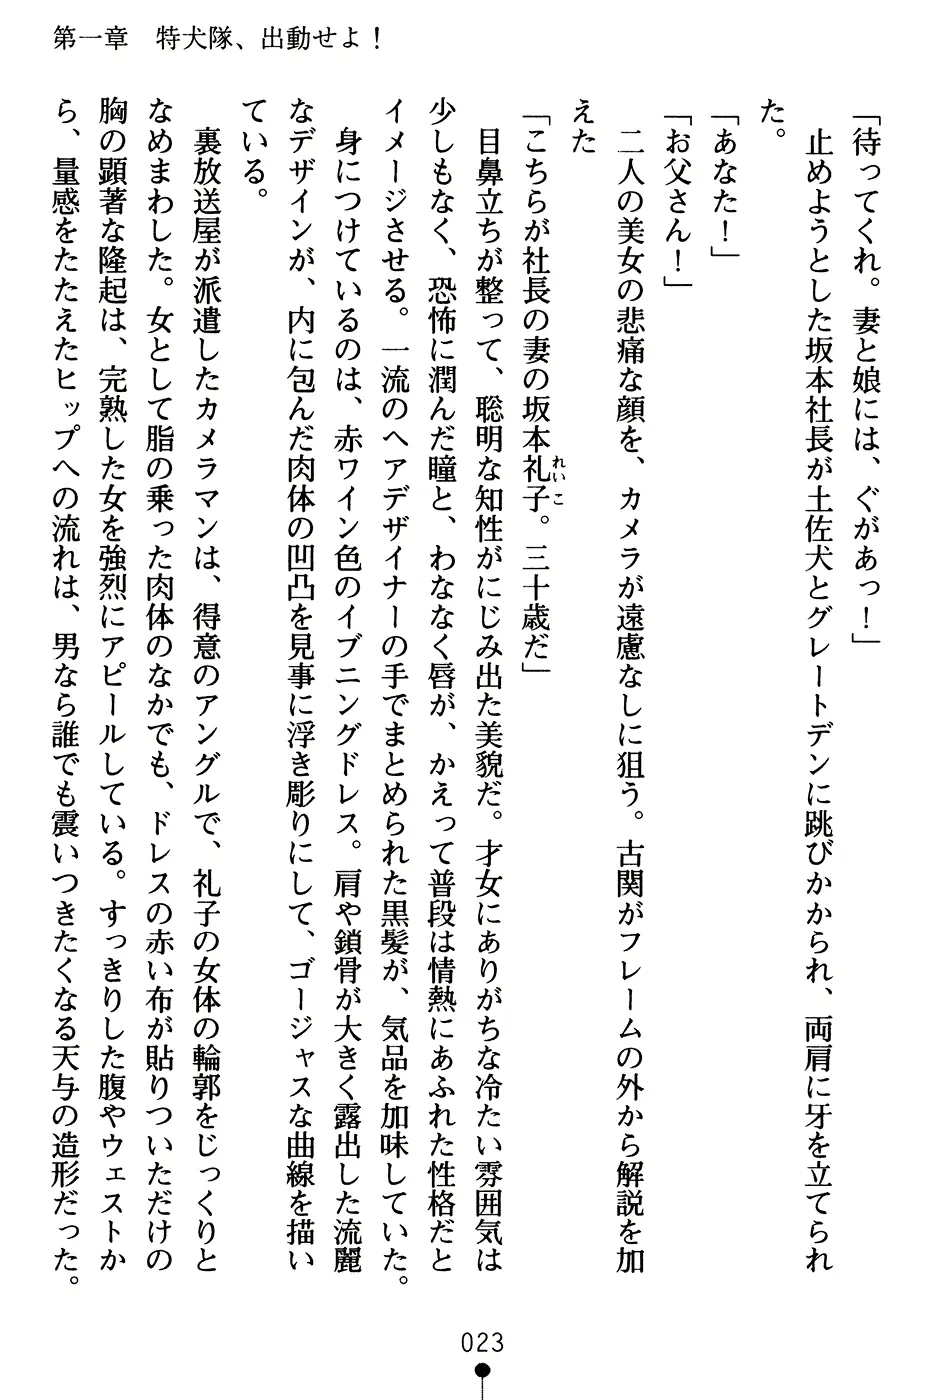 第一章　特犬隊、出動せよ！
「待ってくれ。妻と娘には、ぐがあっ！」
　止めようとした坂本社長が土佐犬とグレートデンに跳びかかられ、両肩に牙を立てられ
た。
「あなた！」
「お父さん！」
　二人の美女の悲痛な顔を、カメラが遠慮なしに狙う。古関がフレームの外から解説を加
えた
「こちらが社長の妻の坂本礼子。三十歳だ」
れいこ
　目鼻立ちが整って、聡明な知性がにじみ出た美貌だ。才女にありがちな冷たい雰囲気は
少しもなく、恐怖に潤んだ瞳と、わななく唇が、かえって普段は情熱にあふれた性格だと
イメージさせる。一流のヘアデザイナーの手でまとめられた黒髪が、気品を加味していた。
　身につけているのは、赤ワイン色のイブニングドレス。肩や鎖骨が大きく露出した流麗
なデザインが、内に包んだ肉体の凹凸を見事に浮き彫りにして、ゴージャスな曲線を描い
ている。
　裏放送屋が派遣したカメラマンは、得意のアングルで、礼子の女体の輪郭をじっくりと
なめまわした。女として脂の乗った肉体のなかでも、ドレスの赤い布が貼りついただけの
胸の顕著な隆起は、完熟した女を強烈にアピールしている。すっきりした腹やウェストか
ら、量感をたたえたヒップへの流れは、男なら誰でも震いつきたくなる天与の造形だった。
023